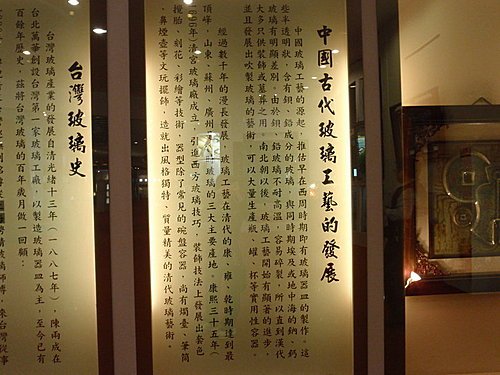 中國古代玻璃工藝的發展
中國玻璃工藝的源起，推估早在西周時期即有玻璃器皿的製作。這
些半透明狀，含有鋇、鉛成分的玻璃，與同時期埃及或地中海的鈉、鈣
玻璃有明顯差別。由於鋇、鉛玻璃不耐高溫，容易碎裂，所以直到漢代
大多只供裝飾或墓葬之用。南北朝以後，玻璃工藝開始有顯著的進步，
並且發展出吹製玻璃的藝術，可以大量生產瓶、罐、杯等實用性容器。
經過數千年的漫長發展，玻璃工藝在清代的康、雍、乾時期達到最
頂峰，山東、蘇州、廣州
玻璃的三大主要產地。康熙三十五年（
清宮玻璃廠成立，引進西方玻璃技巧，裝飾技法上發展出套色
攪胎、刻花、彩繪等技術，器型除了常見的碗盤容器，尚有燭臺、筆筒
、鼻煙壺等文玩擺飾，造就出風格獨特、質量精美的清代玻璃藝術。
台灣玻璃史
台灣玻璃產業的發展自清光緒十三年（一八八七年），陳兩成在
台北萬華創設台灣第一家玻璃工廠，以製造玻璃器皿為主，至今已有
百餘年歷史，茲將台灣玻璃的百年歲月做一回顧。